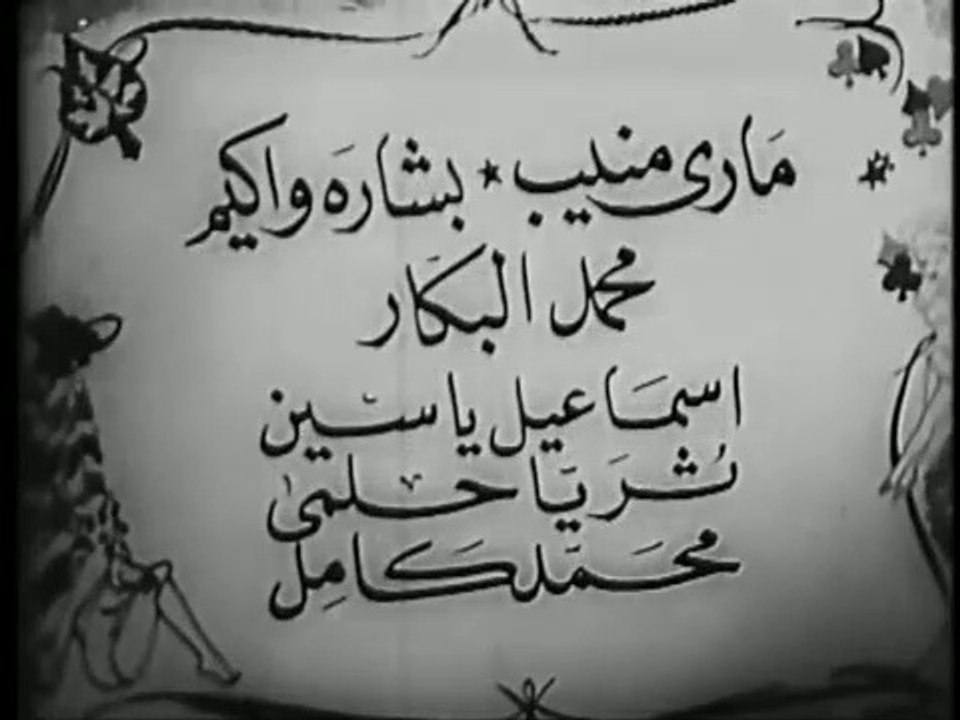 ماري منيب * بشاره واكيم
محمد البكار
اسماعيل ياسين
ثريا حلمى
محمد كامل